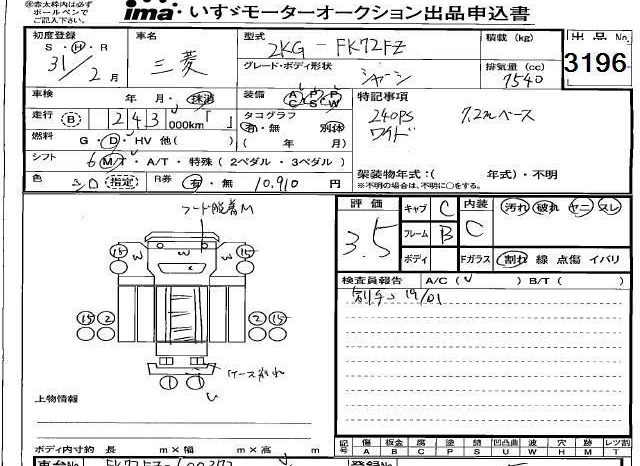 ※赤太枠内は必ず
ボールペンで
ご記入下さい。
ima いすゞモーターオークション出品申込書
初度登録
S・H・R
31/2月
車名
三菱
型式
2KG-FK72FZ
グレード・ボディ形状
シャーシ
積載(kg)
排気量(cc)
7540
出品No.
3196
車検 年・月・抹消
装備 A P P
C S W
走行 B 243 000km「 」
タコグラフ
有・無 別体
( 年 月)
燃料 G・D・HV 他( )
シフト 6 M/T・A/T・特殊(2ペダル・3ペダル)
色 シロ 指定
R券 有・無 10,910 円
特記事項
240ps 7.2mベース
ワイド
架装物年式:( 年式)・不明
※不明の場合は、不明に○をする。
評価
3.5
キャブ C
フレーム B
ボディ
内装
C
汚れ 破れ ヤニ スレ
Fガラス 割れ 線 点傷 イバリ
検査員報告 A/C( ) B/T( )
19/01
フード脱着M
W W W
15 15
15 2 2 15
ケース割れ
1 1
上物情報
ボディ内寸約 長 m×幅 m×高 m
記号 傷 A 板金 B 腐 C 塗 P 錆 S 凹凸曲 U 波 W 穴 H 跡 M レツ割 T
車台No.